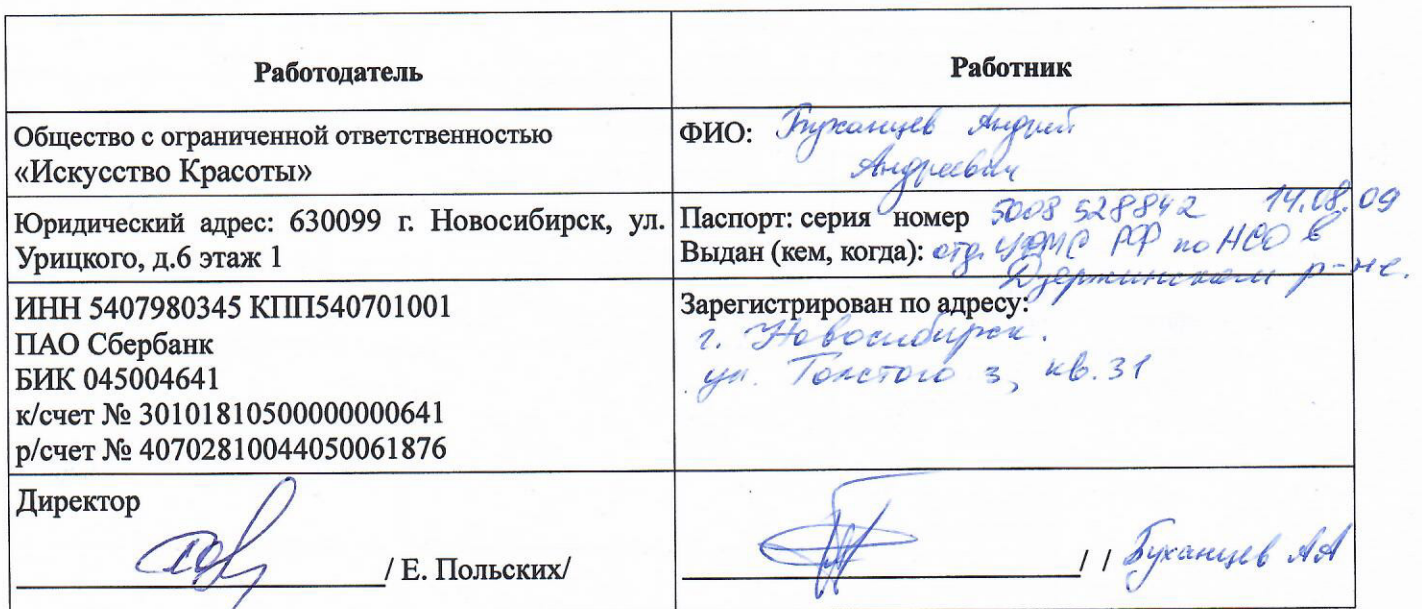 Работодатель
Работник
Общество с ограниченной ответственностью
«Искусство Красоты»
ФИО: Буханцев Андрей
Андреевич
Юридический адрес: 630099 г. Новосибирск, ул.
Урицкого, д.6 этаж 1
Паспорт: серия номер 5008 528842 14.08.09
Выдан (кем, когда): отд. УФМС РФ по НСО в
Дзержинском р-не.
ИНН 5407980345 КПП540701001
ПАО Сбербанк
БИК 045004641
к/счет № 30101810500000000641
р/счет № 40702810044050061876
Зарегистрирован по адресу:
г. Новосибирск.
ул. Толстого 3, кв.31
Директор
/ Е. Польских/
/ / Буханцев АА